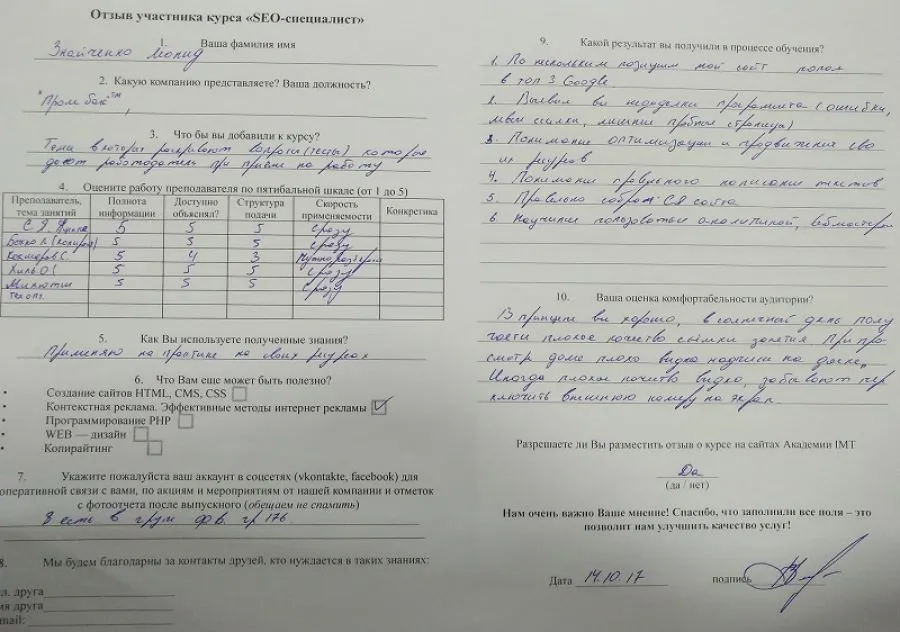 Отзыв участника курса «SEO-специлист»
1. Ваша фамилия имя
Знайченко Леонид
2. Какую компанию представляете? Ваша должность?
"Пром бак"™,
3. Что бы вы добавили к курсу?
Тема в которой раскрывают вопросы (тесты) которые
дают работодатели при приеме на работу
4. Оцените работу преподавателя по пятибальной шкале (от 1 до 5)
Преподаватель, тема занятий Полнота информации Доступно объяснял? Структура подачи Скорость применяемости Конкретика
5 5 5 сразу
5 5 5 сразу
5 4 3
5 5 5 сразу
5 5 5 сразу
5. Как Вы используете полученные знания?
Применяю на практике на своих ресурсах
6. Что Вам еще может быть полезно?
• Создание сайтов HTML, CMS, CSS
• Контекстная реклама. Эффективные методы интернет рекламы
• Программирование PHP
• WEB — дизайн
• Копирайтинг
7. Укажите пожалуйста ваш аккаунт в соцсетях (vkontakte, facebook) для
оперативной связи с вами, по акциям и мероприятиям от нашей компании и отметок
с фотоотчета после выпускного (обещаем не спамить)
Я есть в груп ф.в. гр 176.
8. Мы будем благодарны за контакты друзей, кто нуждается в таких знаниях:
друга
друга
mail:
9. Какой результат вы получили в процессе обучения?
1. По нескольким позициям мой сайт попал
в топ 3 Google
все недоделки програмиста (ошибки,
ссылки, лишние пробел страницы)
3. Понимание оптимизации и продвижения сво
их ресурсов
4. Понимание правильного написание текстов
5. Правильно собрат СЯ сайта
6 Научился пользоваться аналитикой, вебмастером
10. Ваша оценка комфортабельности аудитории?
В принципе все хорошо, в солнечный день полу
чается плохое качество съёмки занятия При про-
смотр дома плохо видно надписи на доске,
Иногда плохое качество видио, забывают пер
ключить внешнюю камеру на экран
Разрешаете ли Вы разместить отзыв о курсе на сайтах Академии IMT
Да
(да / нет)
Нам очень важно Ваше мнение! Спасибо, что заполнили все поля – это
позволит нам улучшить качество услуг!
Дата 14.10.17 подпись